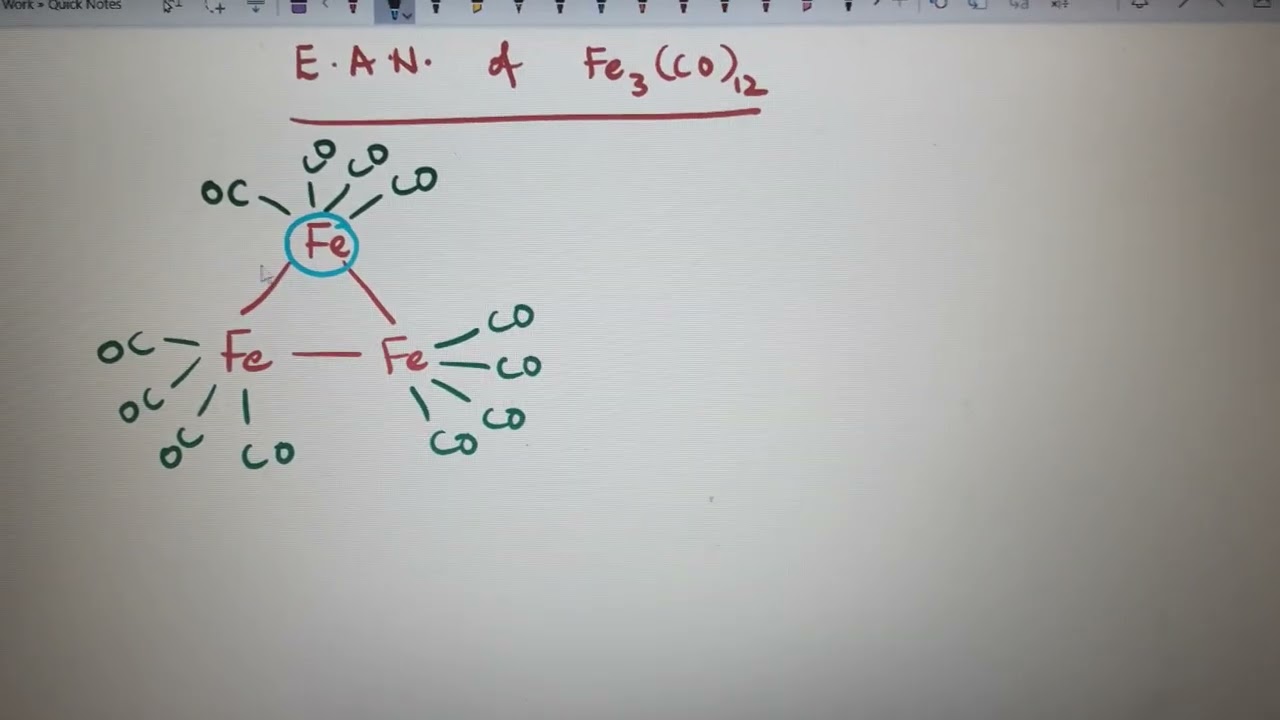 Work » Quick Notes
E.A.N. of Fe3(CO)12
CO CO
OC CO
Fe
CO
OC Fe Fe CO
OC CO
OC CO CO